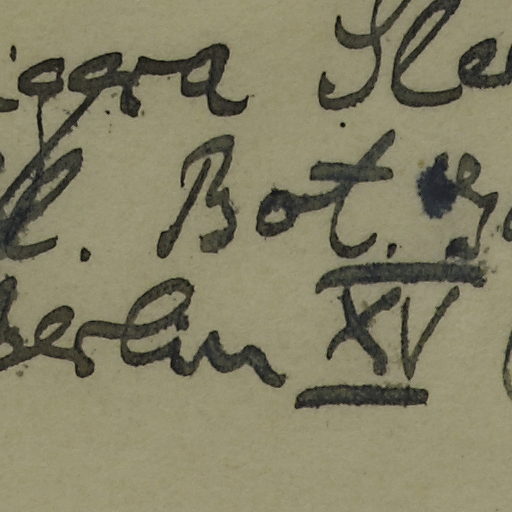 igera Sle
l. Bot. G
Berlin XV